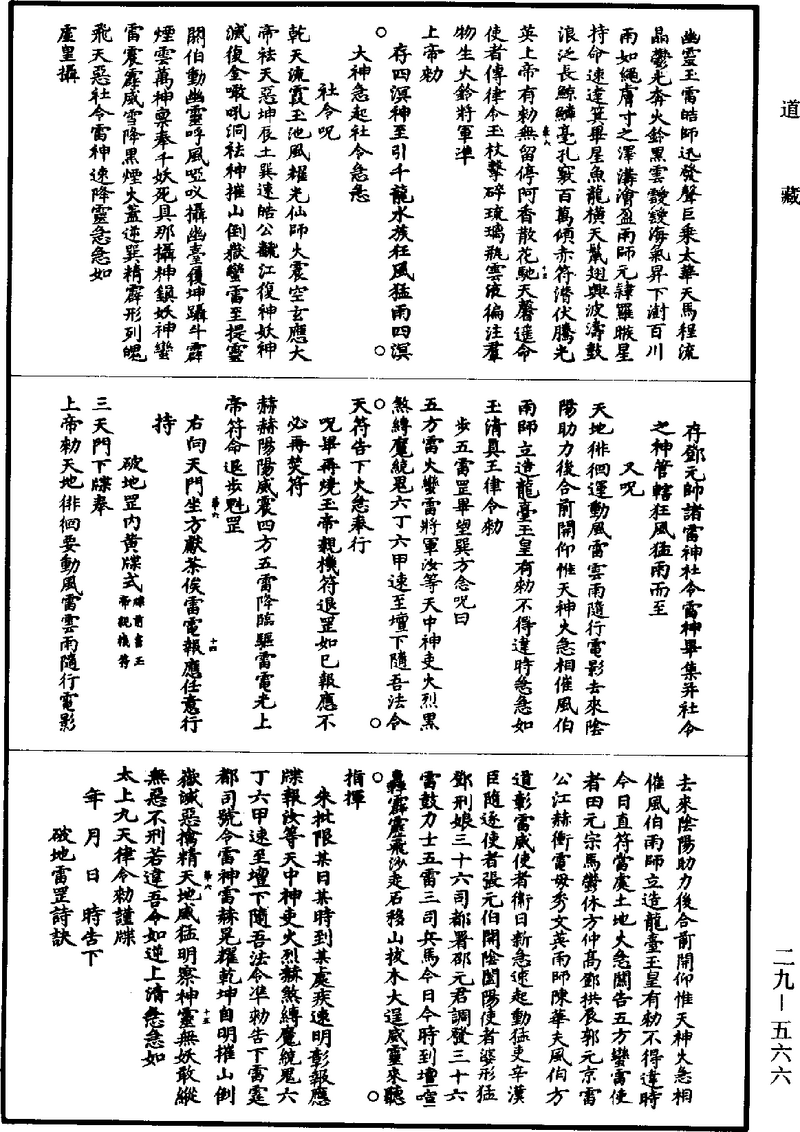 道藏
幽靈玉雷皓師迅發聲巨乘太華天馬程流
晶鬱光奔火鈴黑雲靉靆海氣昇下澍百川
雨如繩膚寸之澤溝澮盈雨師元肄羅睺星
持命速違箕畢星魚龍橫天鬣翅興波濤鼓
浪泛長鯨鱗毫孔竅百萬傾赤符潛伏騰光
英上帝有勅無留停阿香散花馳天馨遥命
使者傳律令玉杖擊碎琉璃瓶雲液徧注羣
物生火鈴將軍準
上帝勅
存四溟神至引千龍水族狂風猛雨四溟
大神急起社令急急
社令呪
乾天流霞玉池風耀光仙師火震空玄應大
帝祛天惡坤辰土巽速皓公江復神妖神
滅復金噉吼洞祛神摧山倒嶽蠻雷至提靈
閼伯動幽靈呼風啞㕥攝幽臺復坤躡斗霹
煙雲萬神稟奉千妖死具那攝神鎮妖神蠻
雷震霹威雪降黑煙火蓋逆巽精霹形列魄
飛天惡社令雷神速降靈急急如
虛皇攝
存鄧元帥諸雷神社令雷神畢集并社令
之神管轄狂風猛雨而至
又呪
天地徘徊運動風雷雲雨隨行電影去來陰
陽助力後合前開仰惟天神火急相催風伯
雨師立造龍臺玉皇有勅不得違時急急如
玉清真王律令勅
步五雷罡畢望巽方念呪曰
五方雷火蠻雷將軍汝等天中神吏火烈黑
煞縛魔繞鬼六丁六甲速至壇下隨吾法令
天符告下火急奉行
呪畢再燒玉帝親機符退罡如已報應不
必再焚符
赫赫陽陽威震四方五雷降臨驅雷電光上
帝符命退步魁罡
右向天門坐方獻茶俟雷電報應任意行
持
破地罡内黄牒式牒前書玉帝親機符
三天門下牒奉
上帝勅天地徘徊要動風雷雲雨隨行電影
去來陰陽助力後合前開仰惟天神火急相
催風伯雨師立造龍臺玉皇有勅不得違時
今日直符當處土地火急關告五方蠻雷使
者田元宗馬鬱休方仲高鄧拱辰郭元京雷
公江赫衝雷母秀文英雨師陳華夫風伯方
道彰雷威使者衛日新急速起動猛吏辛漢
臣隨逐使者張元伯開陰闔陽使者婆形猛
鄧刑娘三十六司都署邵元君調發三十六
雷鼓力士五雷三司兵馬今日今時到壇喧
轟霹靂飛沙走石移山拔木大逞威靈來聽
指揮
朱批限某日某時到某處疾速明彰報應
牒報汝等天中神吏火烈赫煞縛魔繞鬼六
丁六甲速至壇下隨吾法令準勅告下雷霆
都司號令雷神雷赫晃耀乾坤自明摧山倒
嶽滅惡擒精天地威猛明察神靈無妖敢縱
無惡不刑若違吾令如逆上清急急如
太上九天律令勅謹牒
年月日時告下
破地雷罡詩訣
二九—五六六